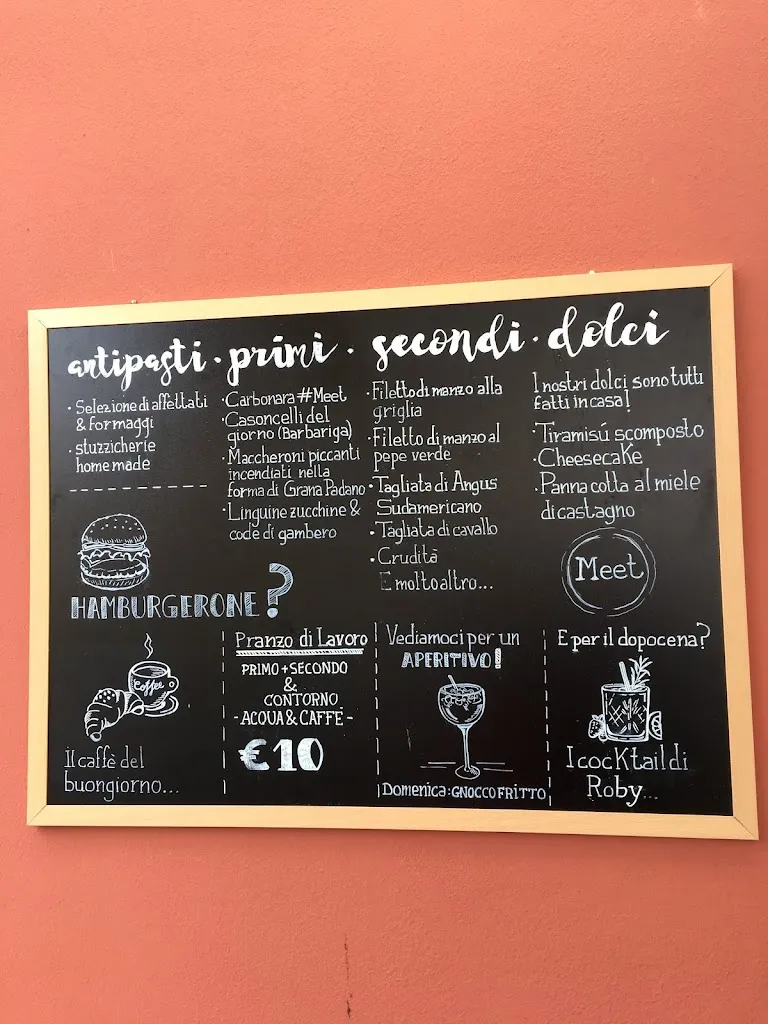 antipasti · primi · secondi · dolci
· Selezione di affettati
& formaggi
· stuzzicherie
home made
HAMBURGERONE?
· Carbonara #Meet
· Casoncelli del
giorno (Barbariga)
· Maccheroni piccanti
incendiati nella
forma di Grana Padano
· Linguine zucchine &
code di gambero
· Filetto di manzo alla
griglia
· Filetto di manzo al
pepe verde
· Tagliata di Angus
Sudamericano
· Tagliata di cavallo
· Crudità
E molto altro...
I nostri dolci sono tutti
fatti in casa!
· Tiramisú scomposto
· Cheesecake
· Panna cotta al miele
di castagno
Meet
Coffee
Il caffè del
buongiorno...
Pranzo di Lavoro
PRIMO + SECONDO
&
CONTORNO
- ACQUA & CAFFÈ -
€10
Vediamoci per un
APERITIVO!
Domenica: GNOCCO FRITTO
E per il dopocena?
I cocktail di
Roby...